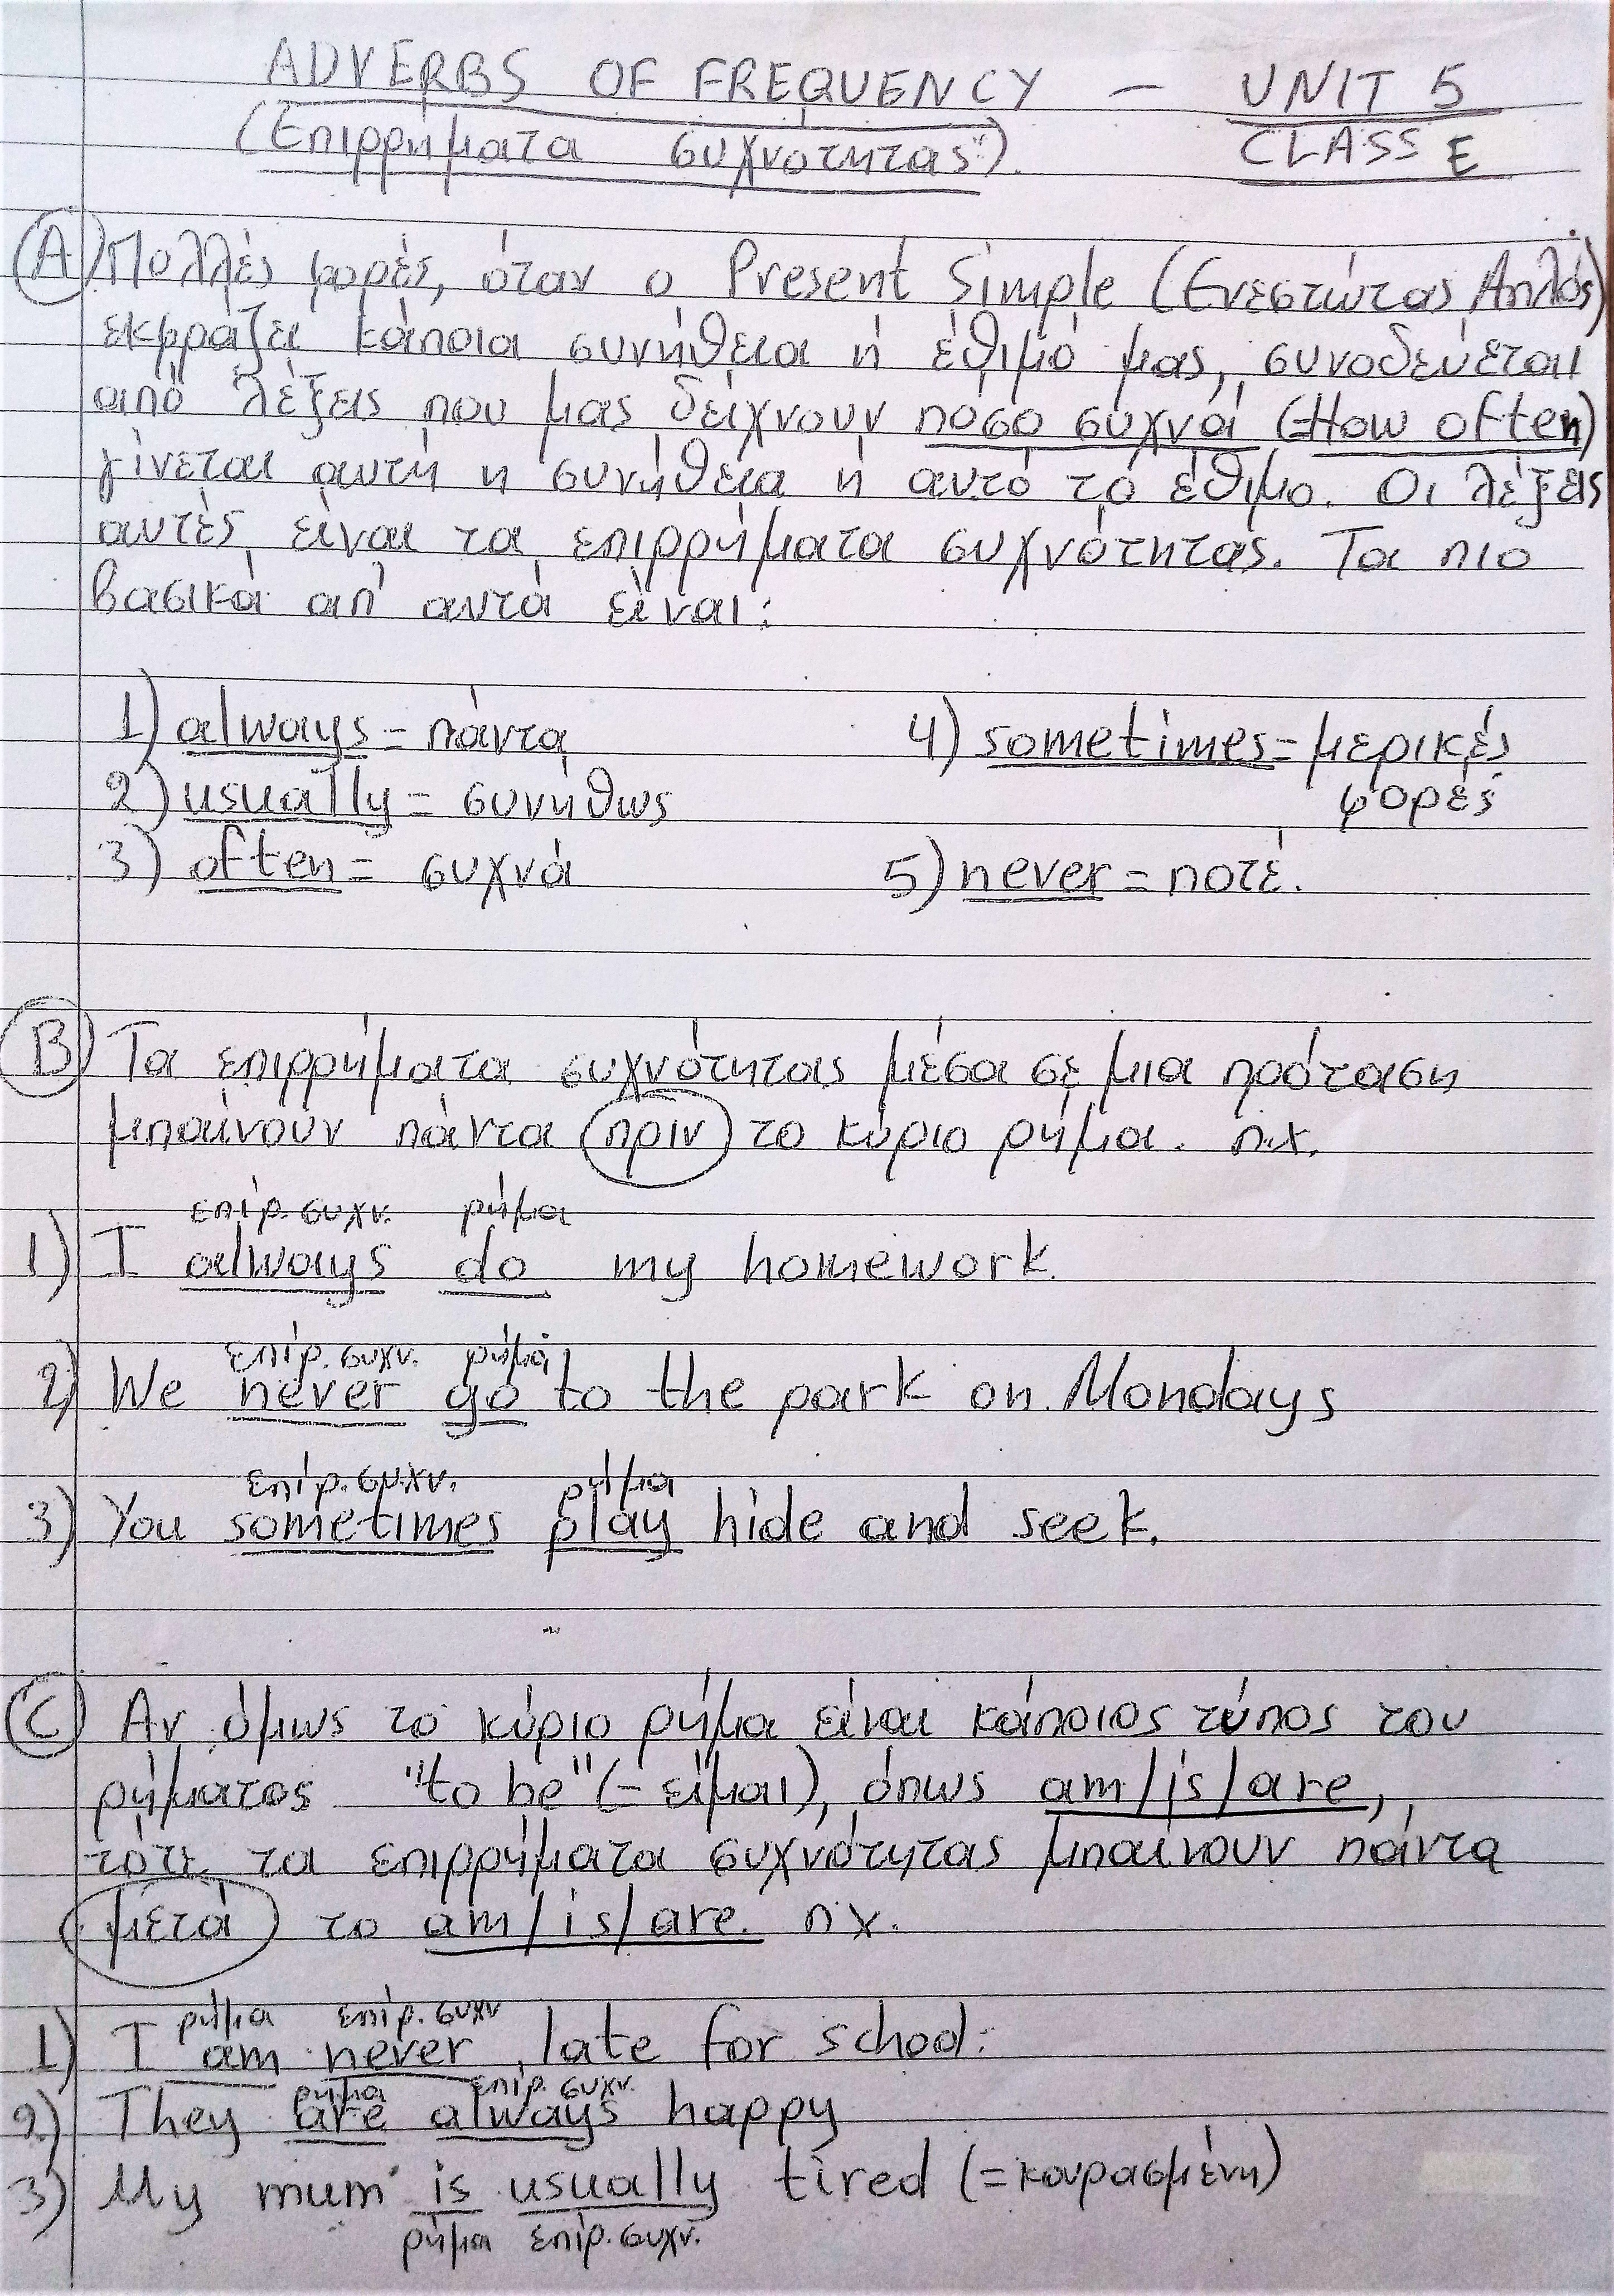 ADVERBS OF FREQUENCY – UNIT 5
(Επιρρήματα συχνότητας). CLASS E
Α Πολλές φορές, όταν ο Present Simple (Ενεστώτας Απλός)
εκφράζει κάποια συνήθεια ή έθιμό μας, συνοδεύεται
από λέξεις που μας δείχνουν πόσο συχνά (=How often)
γίνεται αυτή η συνήθεια ή αυτό το έθιμο. Οι λέξεις
αυτές είναι τα επιρρήματα συχνότητας. Τα πιο
βασικά απ' αυτά είναι:
1) always = πάντα 4) sometimes = μερικές
φορές
2) usually = συνήθως
3) often = συχνά 5) never = ποτέ.
B Τα επιρρήματα συχνότητας μέσα σε μια πρόταση
μπαίνουν πάντα πριν το κύριο ρήμα. π.χ.
επίρ. συχν. ρήμα
1) I always do my homework.
επίρ. συχν. ρήμα
2) We never go to the park on Mondays
επίρ. συχν. ρήμα
3) You sometimes play hide and seek.
C Αν όμως το κύριο ρήμα είναι κάποιος τύπος του
ρήματος "to be" (= είμαι), όπως am/is/are,
τότε τα επιρρήματα συχνότητας μπαίνουν πάντα
μετά το am/is/are. πχ.
ρήμα επίρ. συχν
1) I am never late for school.
ρήμα επίρ. συχν.
2) They are always happy
3) My mum is usually tired (=κουρασμένη)
ρήμα επίρ. συχν.